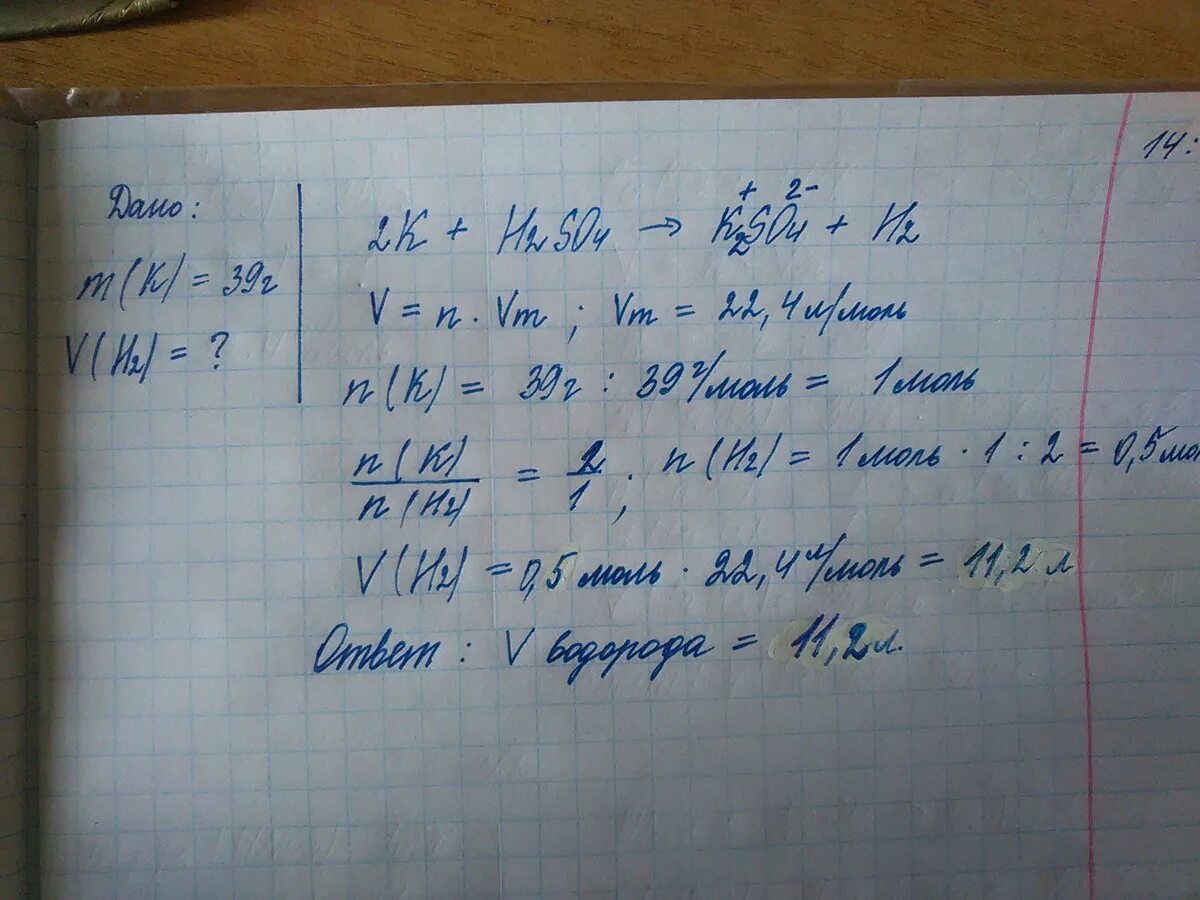 14:
Дано:
m(K) = 39г
V(H2) = ?
+ 2-
2K + H2SO4 → K2SO4 + H2
V = n · Vm ; Vm = 22,4 л/моль
n(K) = 39г : 39 г/моль = 1 моль
n(K)
n(H2)
= 2/1 ; n(H2) = 1 моль · 1 : 2 = 0,5 мол
V(H2) = 0,5 моль · 22,4 л/моль = 11,2 л
Ответ : V водорода = 11,2 л.